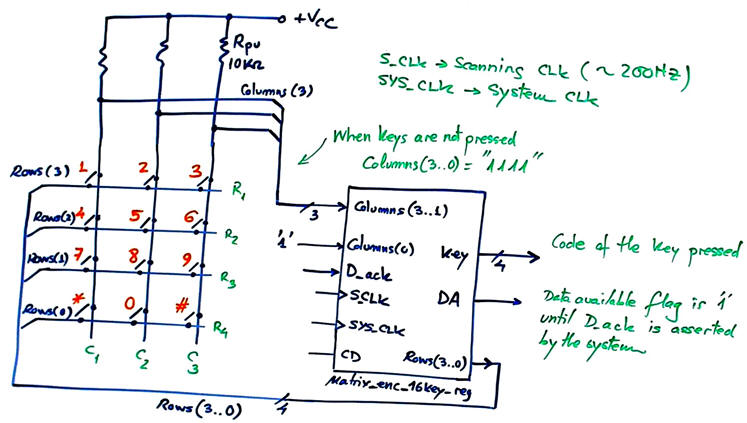 +VCC
Rpu
10KΩ
Columns(3)
S_CLK → Scanning CLK (~200Hz)
SYS_CLK → System CLK
When keys are not pressed
Columns(3..0) = "1111"
Rows(3)
1
2
3
R1
Rows(2)
4
5
6
R2
Rows(1)
7
8
9
R3
Rows(0)
*
0
#
R4
C1
C2
C3
3
Columns(3..1)
'1'
Columns(0)
D_ack
SCLK
SYS_CLK
CD
Key
4
DA
Rows(3..0)
Matrix_enc_16key_reg
Code of the key pressed
Data available flag is '1'
until D_ack is asserted
by the system
Rows(3..0)
4